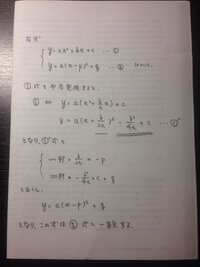 y = ax² + bx + c … ①
y = a(x-p)² + q … ②
①式を平方完成すると、
① ⇔ y = a(x² + b/a x) + c
y = a(x + b/2a)² - b²/4a + c … ①'
となり、①'式の
b/2a = -p
- b²/4a + c = q
とおくと、
y = a(x-p)² + q
となり、この式は②式と一致する。